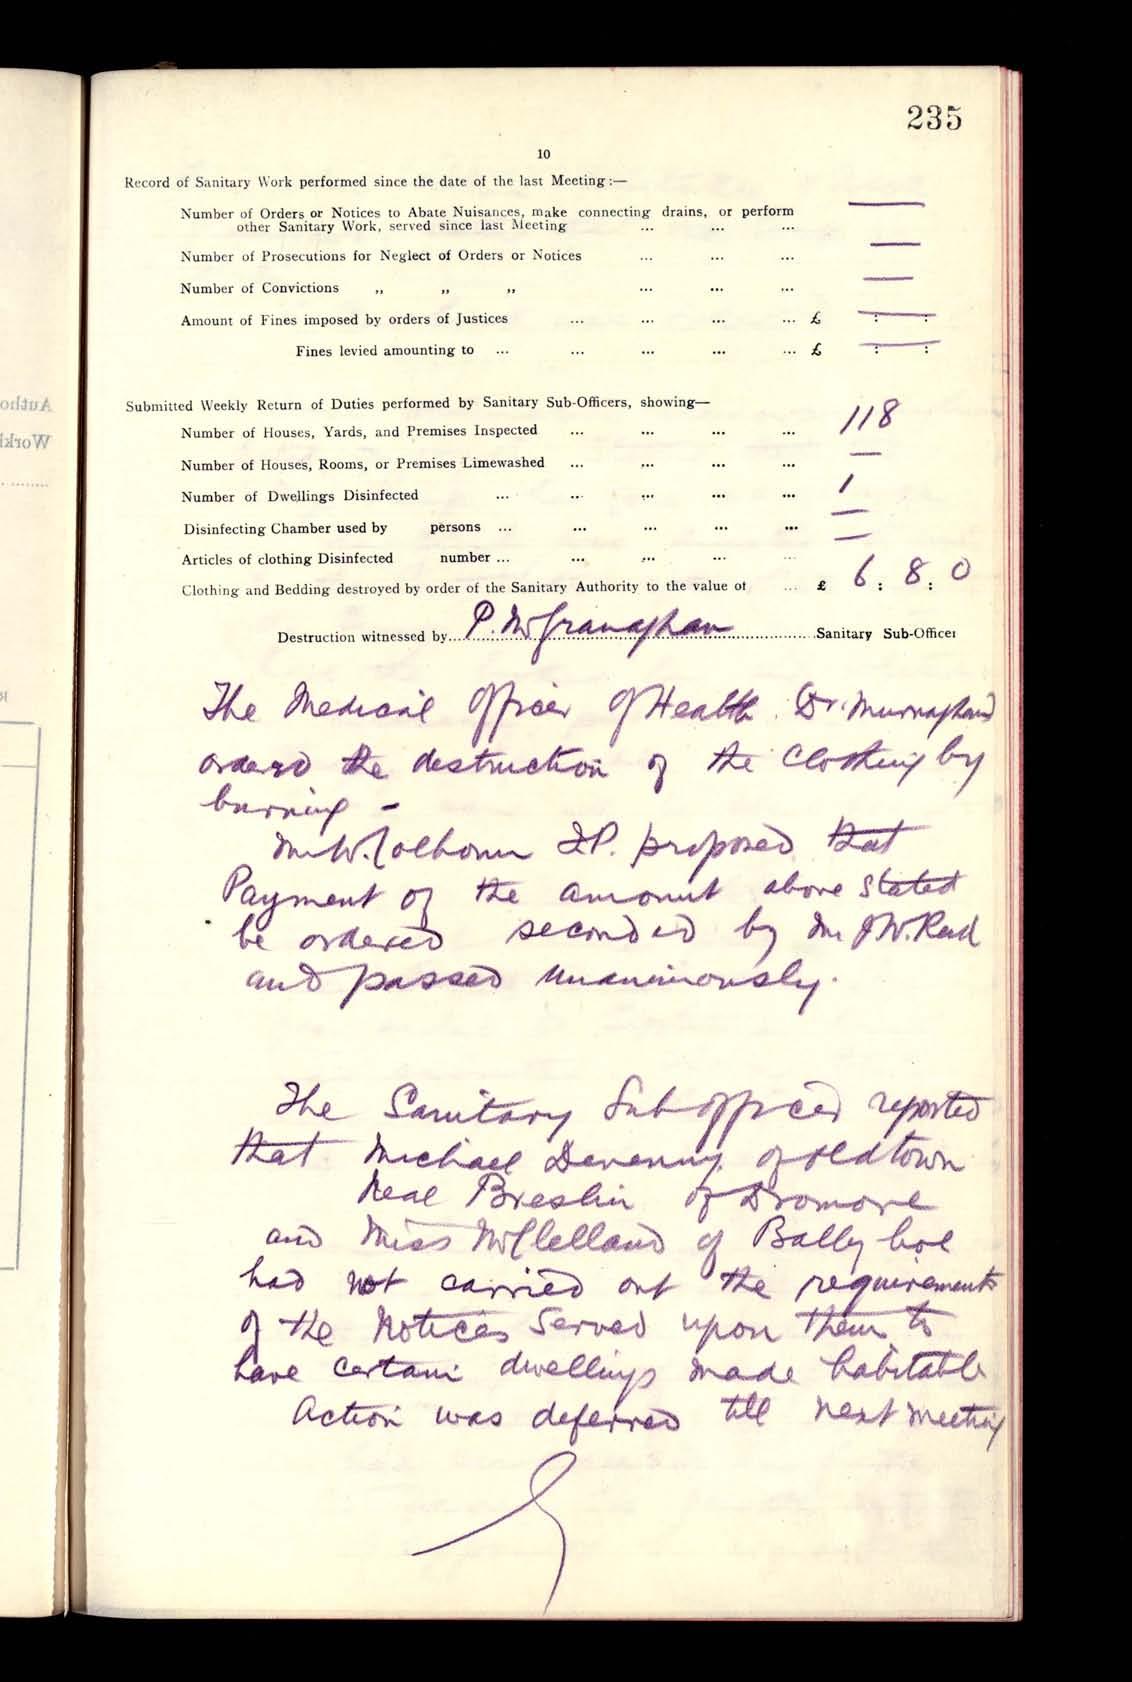 235
10
Record of Sanitary Work performed since the date of the last Meeting:—
Number of Orders or Notices to Abate Nuisances, make connecting drains, or perform
other Sanitary Work, served since last Meeting ... ... ... —
Number of Prosecutions for Neglect of Orders or Notices ... ... ... —
Number of Convictions „ „ „ ... ... ... —
Amount of Fines imposed by orders of Justices ... ... ... ... £ — : — :
Fines levied amounting to ... ... ... ... ... £ — : — :
Submitted Weekly Return of Duties performed by Sanitary Sub-Officers, showing—
Number of Houses, Yards, and Premises Inspected ... ... ... ... 118
Number of Houses, Rooms, or Premises Limewashed ... ... ... ... —
Number of Dwellings Disinfected ... ... ... ... ... 1
Disinfecting Chamber used by persons ... ... ... ... ... —
Articles of clothing Disinfected number ... ... ... ... ... —
Clothing and Bedding destroyed by order of the Sanitary Authority to the value of ... £ 6 : 8 : 0
Destruction witnessed by P. McGranaghan Sanitary Sub-Officer
The Medical Officer of Health Dr. Murnaghan
ordered the destruction of the Clothing by
burning -
Mr W. Colhoun J.P. proposed that
Payment of the amount above stated
be ordered seconded by Mr J W. Reid
and passed unanimously.
The Sanitary Sub officer reported
that Michael Devenny of Oldtown
Neal Breslin of Dromore
and Miss McClelland of Bally boe
had not carried out the requirements
of the Notices Served upon them to
have certain dwellings made habitable
Action was deferred till next meeting
Authо
Workh